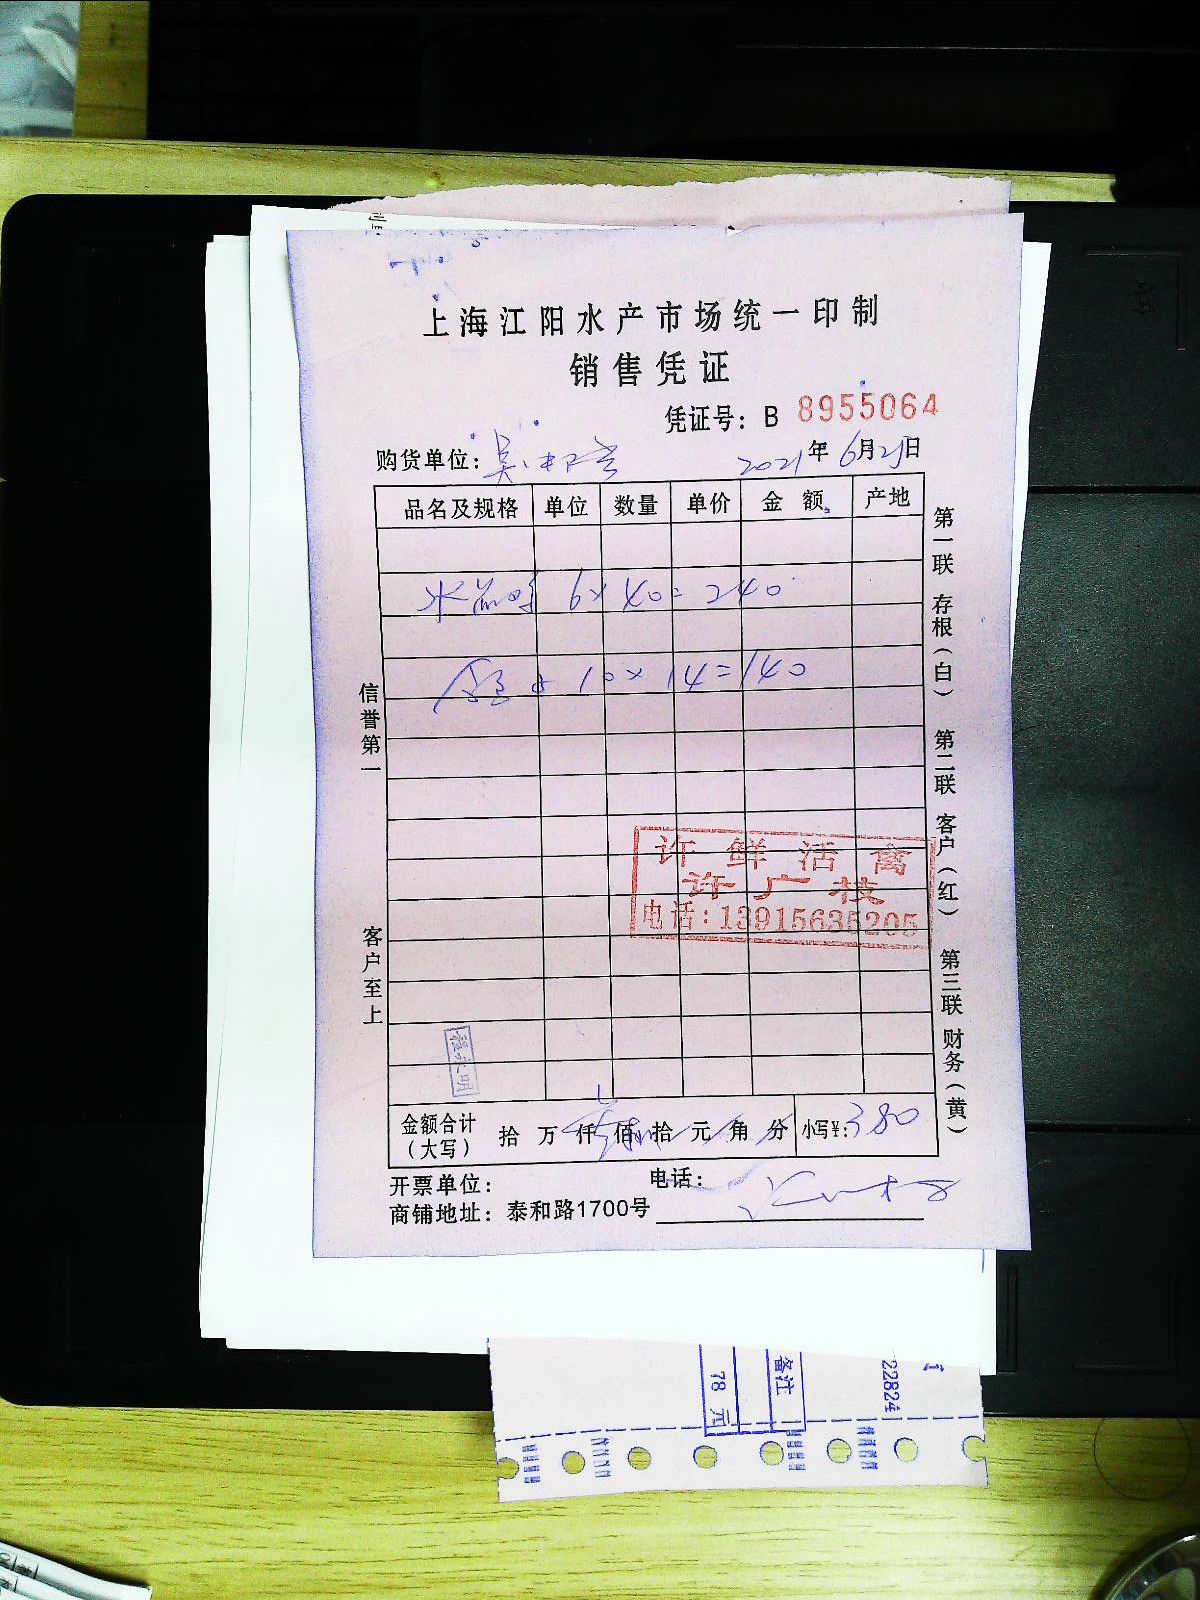 上海江阳水产市场统一印制
销售凭证
凭证号：B 8955064
购货单位：吴 2021年6月25日
品名及规格 单位 数量 单价 金额 产地
6×40=240
10×14=140
许鲜活禽
许广枝
电话：13915635205
金额合计（大写） 拾 万 仟 佰 拾 元 角 分 小写¥：380
开票单位： 电话：
商铺地址：泰和路1700号
信誉第一
客户至上
第一联 存根（白） 第二联 客户（红） 第三联 财务（黄）
78 元
备注
22824